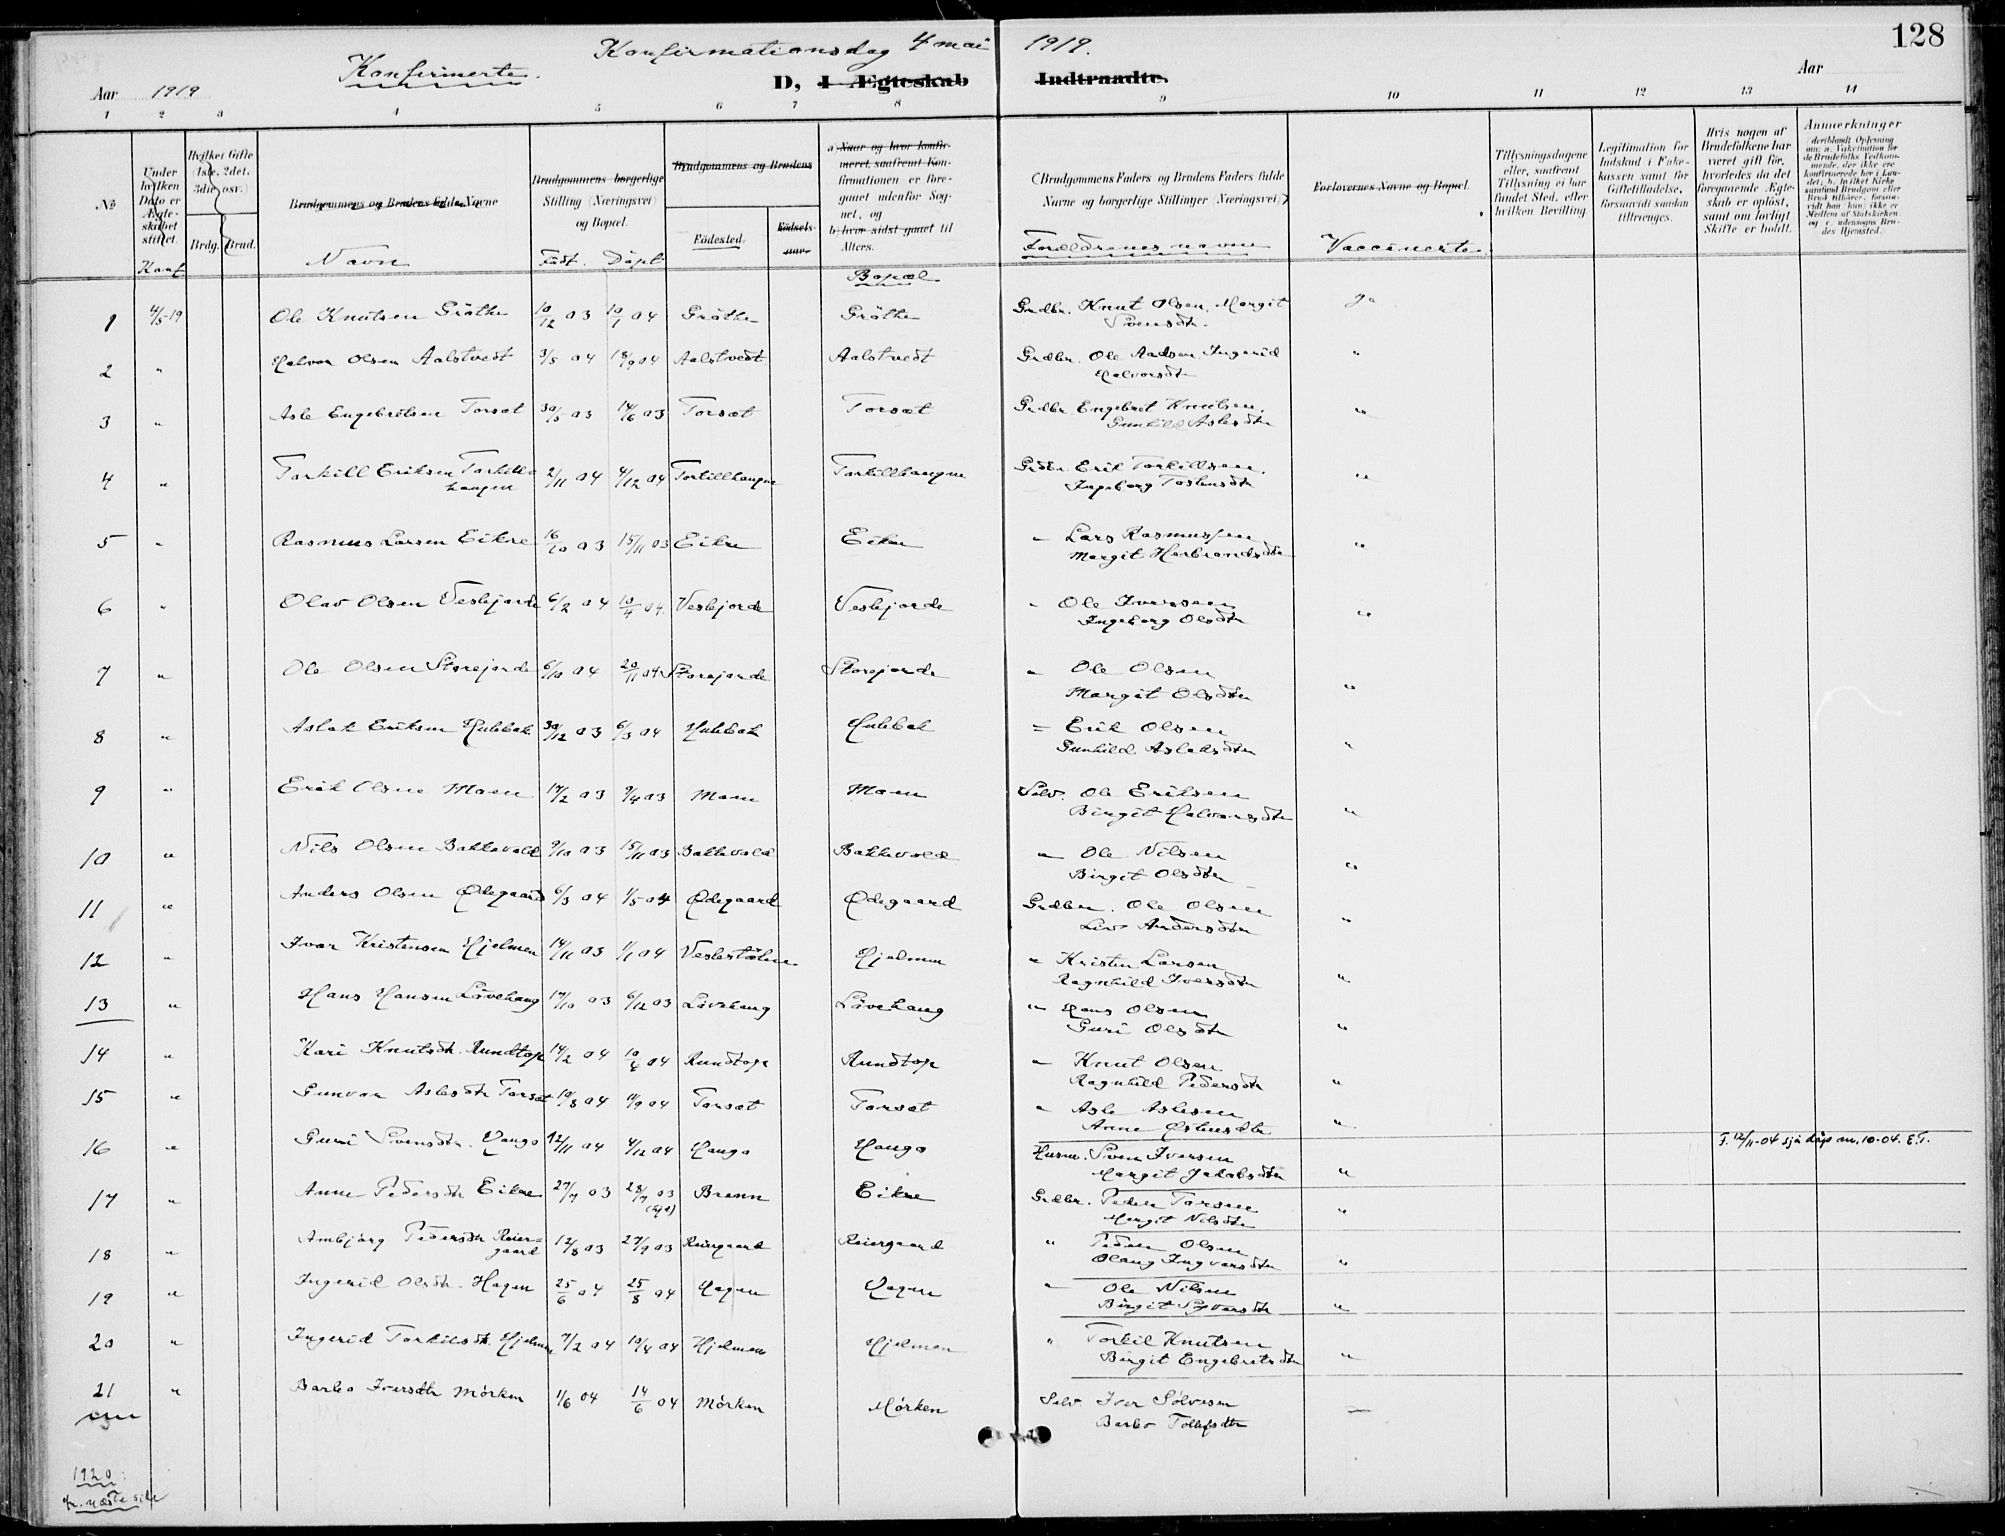 128
Konfirmationsdag 4 mai 1919.
Konfirmerte.
D, I Ægteskab Indtraadte.
Aar 1919
Aar
1 2 3 4 5 6 7 8 9 10 11 12 13 14
No.
Under hvilken Dato er Ægteskabet stiftet.
Konf
Hvilket Gifte (1ste, 2det, 3die osv.)
Brdg. Brud.
Brudgommens og Brudens fulde Navne
Navn
Brudgommens borgerlige Stilling (Næringsvei) og Bopæl.
Født. Døpt
Brudgommens og Brudens
Fødested. Fødselsaar.
a Naar og hvor konfirmeret, saafremt Konfirmationen er foregaaet udenfor Sognet, og
b, hvor sidst gaaet til Alters.
Bopæl
(Brudgommens Faders og Brudens Faders fulde Navne og borgerlige Stillinger (Næringsvei))
Forældrenes navne
Forlovernes Navne og Bopæl.
Vaccinerte.
Tillysningsdagene eller, saafremt Tillysning ei har fundet Sted, efter hvilken Bevilling
Legitimation for Indskud i Enkekassen samt for Giftetilladelse, forsaavidt saadan tiltrænges.
Hvis nogen af Brudefolkene har været gift før, hvorledes da det foregaaende Ægteskab er opløst, samt om lovligt Skifte er holdt.
Anmerkninger
1 4/5-19 Ole Knutsen Grøthe 10/12 03 10/1 04 Grøthe Grøthe Grdbr. Knut Olsen, Margit ja
Svensdtr.
2 " Halvor Olsen Aalstvedt 3/5 04 18/9 04 Aalstvedt Aalstvedt Grdbr. Ole Aadsen Ingerid "
Halvorsdtr
3 " Asle Engebretsen Torsæt 30/5 03 14/6 03 Torsæt Torsæt Grdbr. Engebret Knutsen, "
Gunhild Aslesdtr
4 " Torkill Eriksen Torkillhaugen 2/11 04 4/12 04 Torkillhaugen Torkillhaugen Grdbr. Erik Torkillsen, "
Ingeborg Tostensdtr
5 " Rasmus Larsen Eikre 16/10 03 15/11 03 Eikre Eikre " Lars Rasmussen "
Margit Herbrandsdtr
6 " Olav Olsen Veslejorde 6/2 04 10/4 04 Veslejorde Veslejorde " Ole Iversen "
Ingeborg Olsdtr
7 " Ole Olsen Storejorde 6/10 04 20/11 04 Storejorde Storejorde " Ole Olsen "
Margit Olsdtr
8 " Aslak Eriksen Hulbak 30/12 03 6/3 04 Hulbak Hulbak " Erik Olsen "
Gunhild Aslaksdtr
9 " Erik Olsen Moen 14/2 03 9/4 03 Moen Moen Selv. Ole Eriksen "
Birgit Halvorsdtr
10 " Nils Olsen Bakkevold 9/10 03 15/11 03 Bakkevold Bakkevold " Ole Nilsen "
Birgit Olsdtr
11 " Anders Olsen Ødegaard 6/3 04 1/5 04 Ødegaard Ødegaard Grdbr. Ole Olsen "
Liv Andersdtr
12 " Ivar Kristensen Hjelmen 14/11 03 1/1 04 Veslestølen Hjelmen " Kristen Larsen "
Ragnhild Iversdtr
13 " Hans Hansen Løvehaug 17/10 03 6/12 03 Løvehaug Løvehaug " Hans Olsen "
Guri Olsdtr
14 " Kari Knutsdtr. Rundtop 14/2 04 10/4 04 Rundtop Rundtop " Knut Olsen "
Ragnhild Pedersdtr
15 " Gunvor Aslesdtr Torsæt 10/8 04 11/9 04 Torsæt Torsæt " Asle Aslesen "
Anne Østensdtr
16 " Guri Svensdtr. Hauga 12/11 04 4/12 04 Hauga Hauga Husm. Sven Iversen " F. 12/11-04 sjå dåp nr. 10-04. E.T.
Margit Jakobsdtr
17 " Anne Pedersdtr Eikre 27/7 03 28/7 03 Brenn Eikre Grdbr. Peder Torsen "
Margit Nilsdtr
18 " Ambjørg Pedersdtr Reiergaard 12/8 03 27/9 03 Reiergaard Reiergaard " Peder Olsen "
Olaug Ingvarsdtr
19 " Ingerid Olsdtr. Hagen 25/6 04 25/8 04 Hagen Hagen " Ole Nilsen "
Birgit Syversdtr
20 " Ingerid Torkilsdtr. Hjelmen 7/2 04 10/4 04 Hjelmen Hjelmen " Torkil Knutsen "
Birgit Engebretsdtr
21 " Barbo Iversdtr Mørken 1/6 04 14/6 04 Mørken Mørken Selv. Iver Sølvesen —
Barbo Tollefsdtr
1920:
næste side